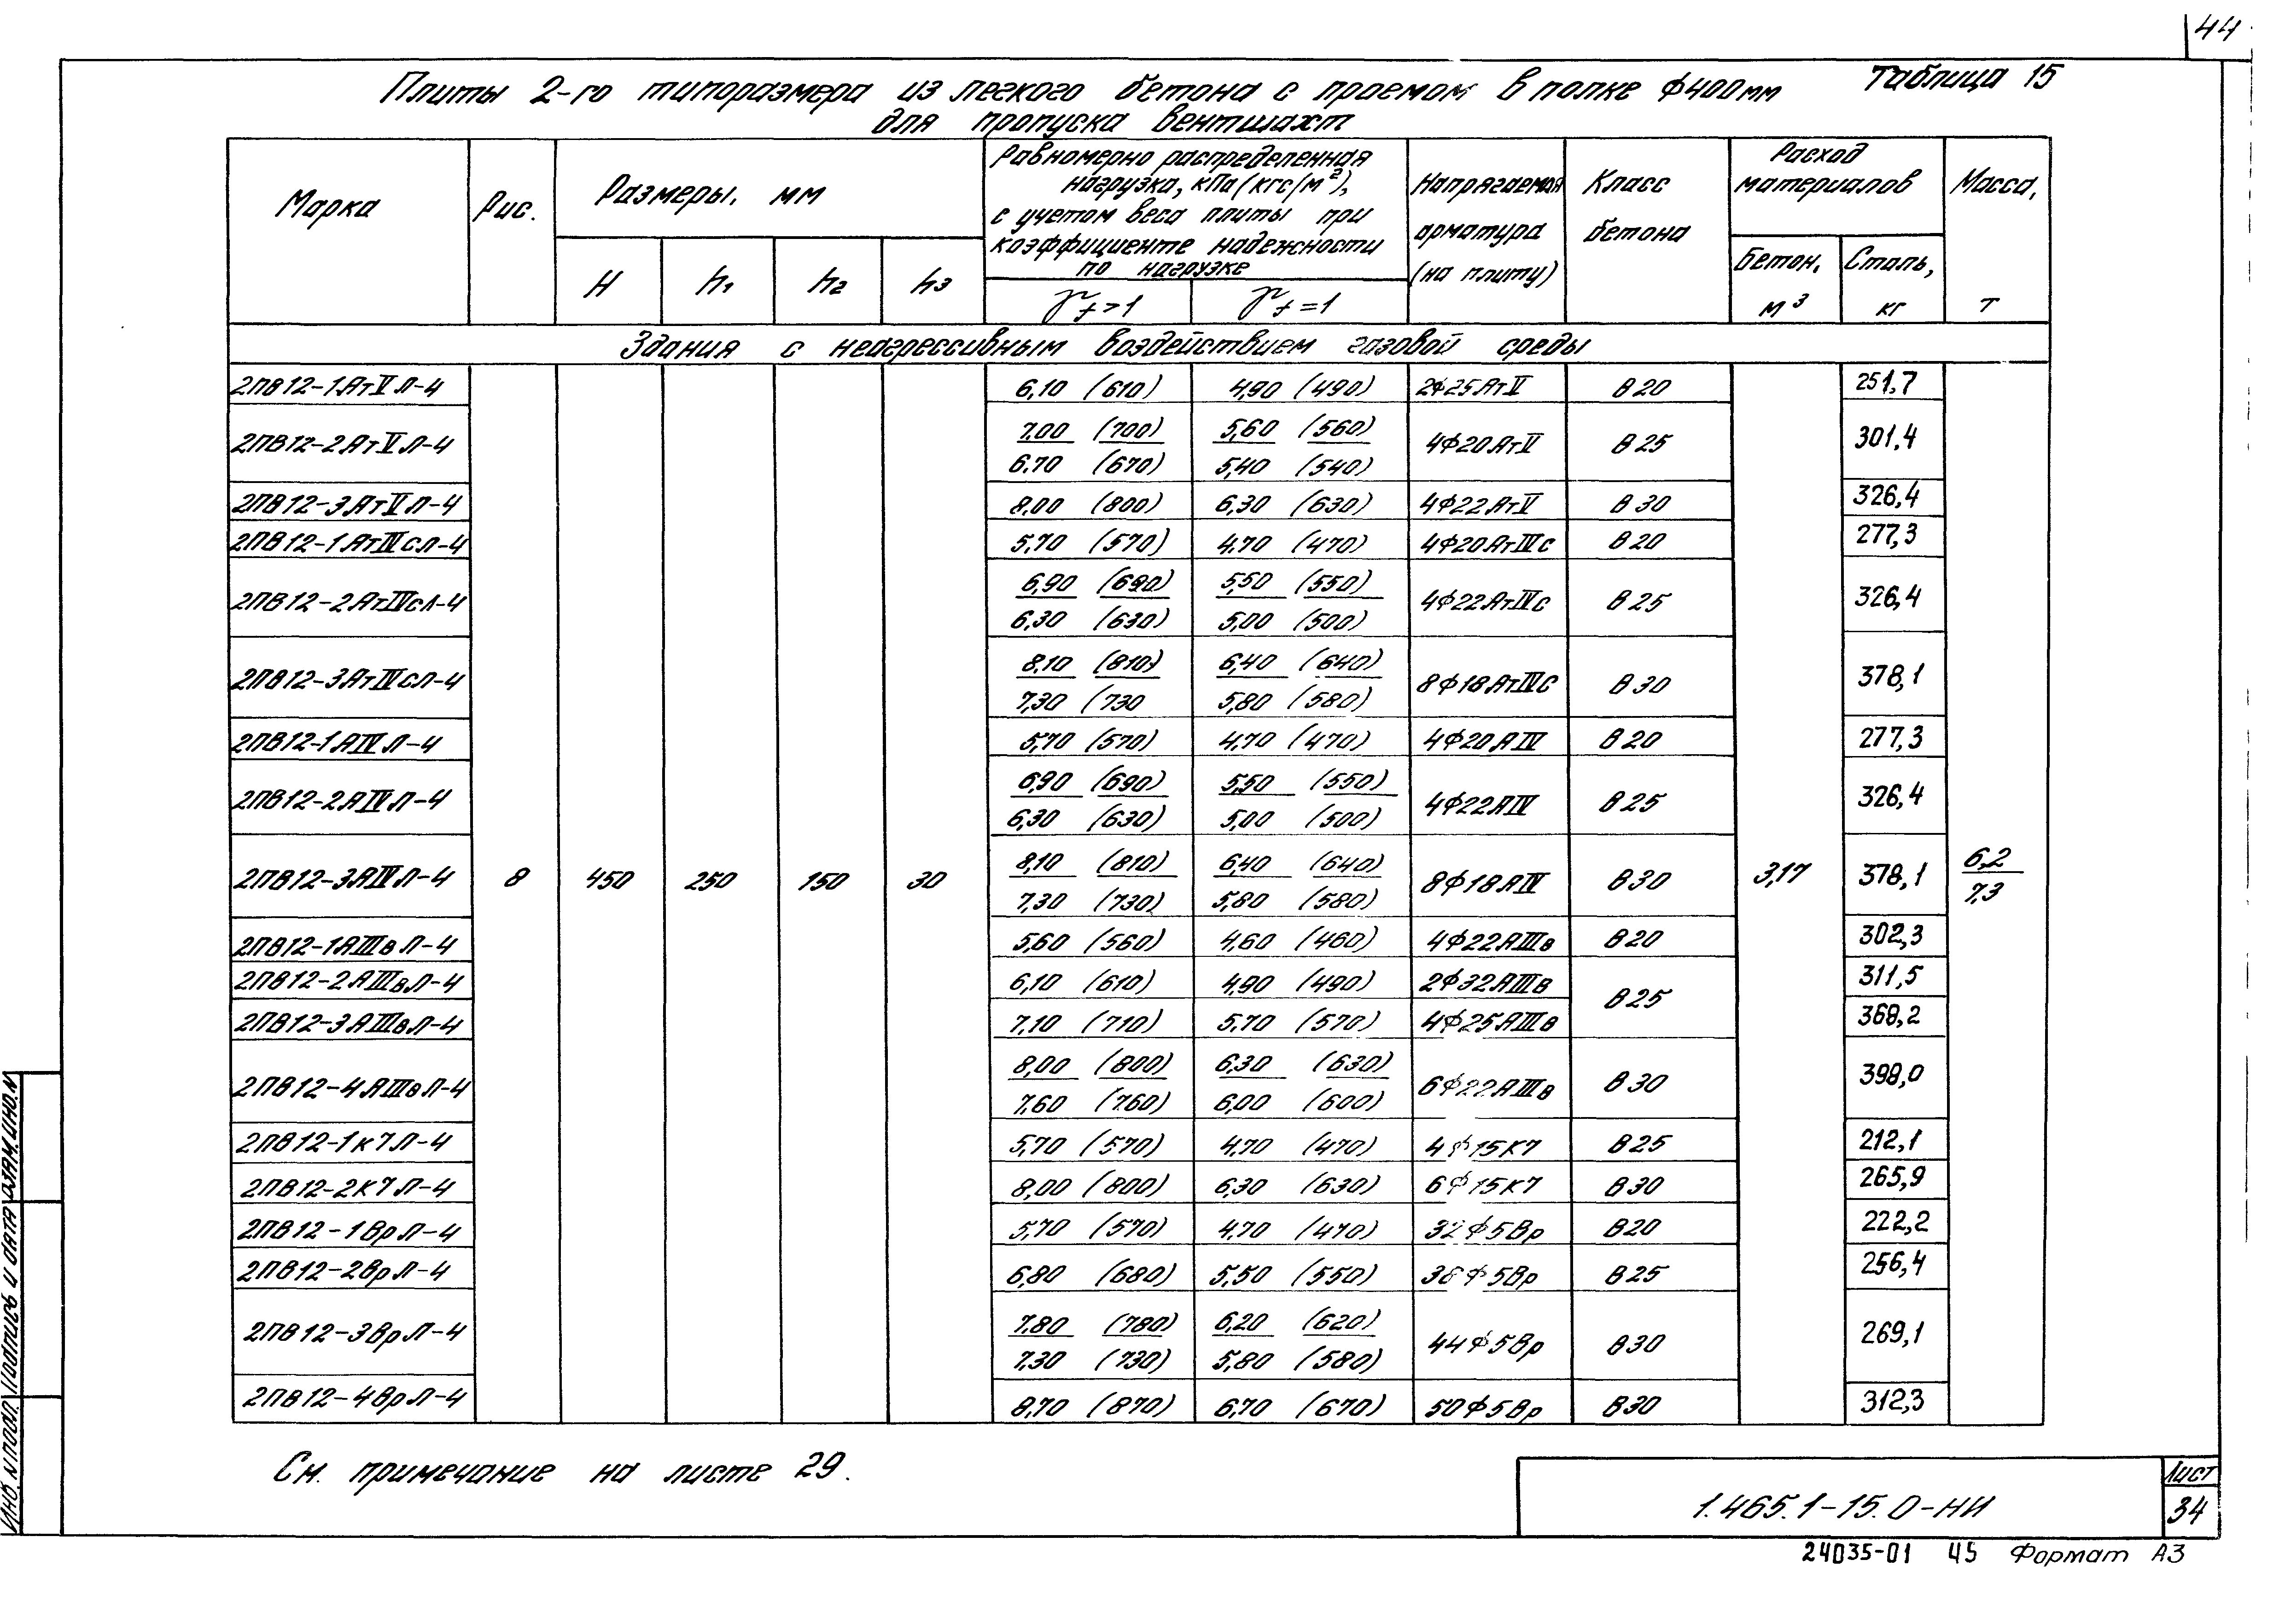 44
Плиты 2-го типоразмера из легкого бетона с проемом в полке ф400мм Таблица 15
для пропуска вентшахт
Марка
Рис.
Размеры, мм
H h1 h2 h3
Равномерно распределенная
нагрузка, кПа (кгс/м²),
с учетом веса плиты при
коэффициенте надежности
по нагрузке
γf>1 γf=1
Напрягаемая
арматура
(на плиту)
Класс
бетона
Расход
материалов
Бетон, м³
Сталь, кг
Масса, т
Здания с неагрессивным воздействием газовой среды
2ПВ12-1АтⅤЛ-4 6,10 (610) 4,90 (490) 2ф25АтⅤ В20 251,7
2ПВ12-2АтⅤЛ-4 7,00 (700) 5,60 (560) 4ф20АтⅤ В25 301,4
6,70 (670) 5,40 (540)
2ПВ12-3АтⅤЛ-4 8,00 (800) 6,30 (630) 4ф22АтⅤ В30 326,4
2ПВ12-1АтⅣсЛ-4 5,70 (570) 4,70 (470) 4ф20АтⅣс В20 277,3
2ПВ12-2АтⅣсЛ-4 6,90 (690) 5,50 (550) 4ф22АтⅣс В25 326,4
6,30 (630) 5,00 (500)
2ПВ12-3АтⅣсЛ-4 8,10 (810) 6,40 (640) 8ф18АтⅣС В30 378,1
7,30 (730 5,80 (580)
2ПВ12-1АⅣЛ-4 5,70 (570) 4,70 (470) 4ф20АⅣ В20 277,3
2ПВ12-2АⅣЛ-4 6,90 (690) 5,50 (550) 4ф22АⅣ В25 326,4
6,30 (630) 5,00 (500)
2ПВ12-3АⅣЛ-4 8 450 250 150 30 8,10 (810) 6,40 (640) 8ф18АⅣ В30 3,17 378,1 6,2
7,30 (730) 5,80 (580) 7,3
2ПВ12-1АⅢвЛ-4 5,60 (560) 4,60 (460) 4ф22АⅢв В20 302,3
2ПВ12-2АⅢвЛ-4 6,10 (610) 4,90 (490) 2ф32АⅢв В25 311,5
2ПВ12-3АⅢвЛ-4 7,10 (710) 5,70 (570) 4ф25АⅢв 368,2
2ПВ12-4АⅢвЛ-4 8,00 (800) 6,30 (630) 6ф22АⅢв В30 398,0
7,60 (760) 6,00 (600)
2ПВ12-1к7Л-4 5,70 (570) 4,70 (470) 4ф15К7 В25 212,1
2ПВ12-2к7Л-4 8,00 (800) 6,30 (630) 6ф15К7 В30 265,9
2ПВ12-1ВрЛ-4 5,70 (570) 4,70 (470) 32ф5Вр В20 222,2
2ПВ12-2ВрЛ-4 6,80 (680) 5,50 (550) 38ф5Вр В25 256,4
2ПВ12-3ВрЛ-4 7,80 (780) 6,20 (620) 44ф5Вр В30 269,1
7,30 (730) 5,80 (580)
2ПВ12-4ВрЛ-4 8,70 (870) 6,70 (670) 50ф5Вр В30 312,3
См. примечание на листе 29.
1.465.1-15.0-НИ
Лист
34
24035-01 45 Формат А3
Инв. N подл. Подпись и дата Взам. инв. N